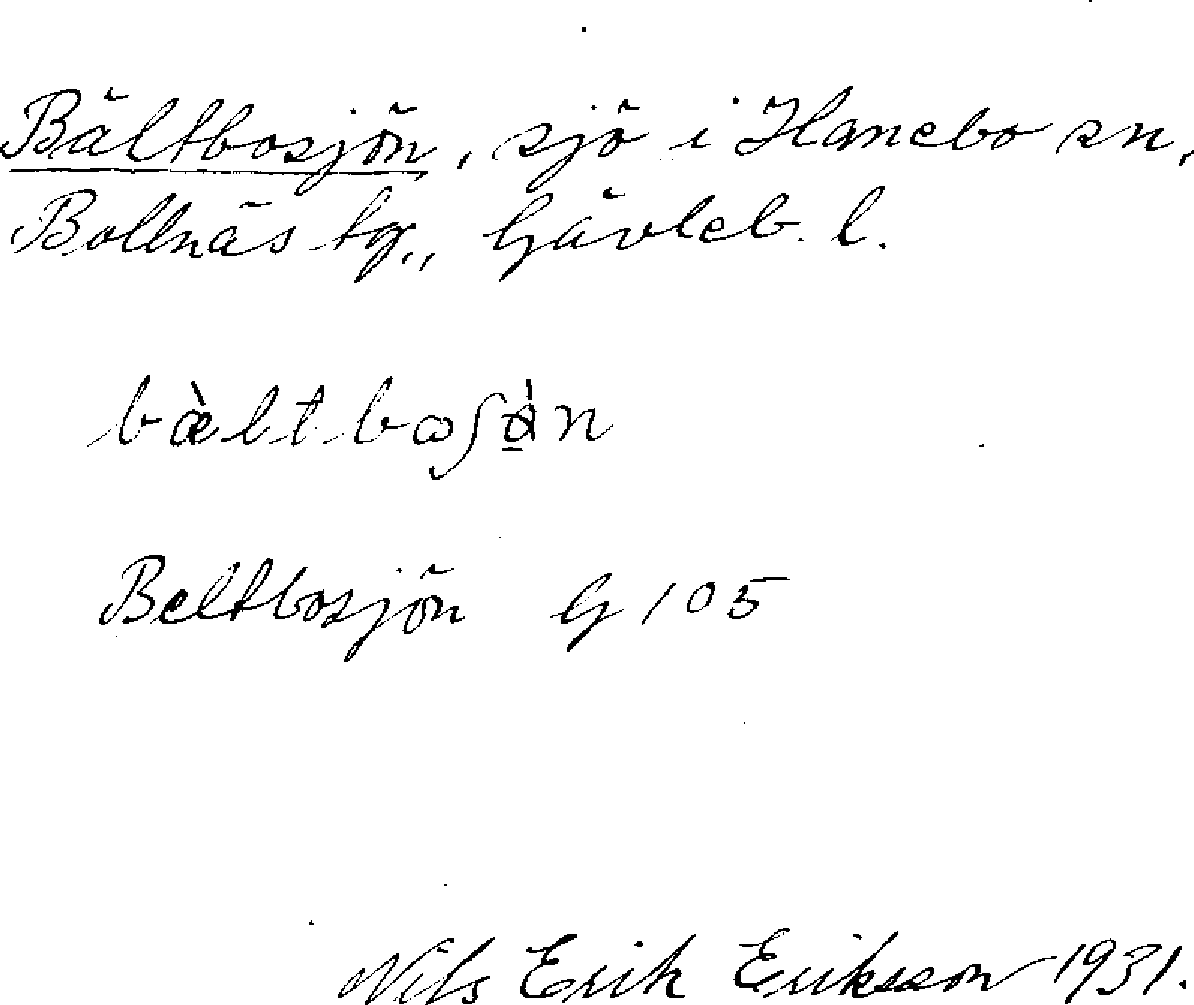 Bältbosjön, sjö i Hanebo sn,
Bollnäs tg., Gävleb. l.
bæ̀ltbωʃø̠̀n
Beltbosjön G 105
Nils Erik Eriksson 1931.